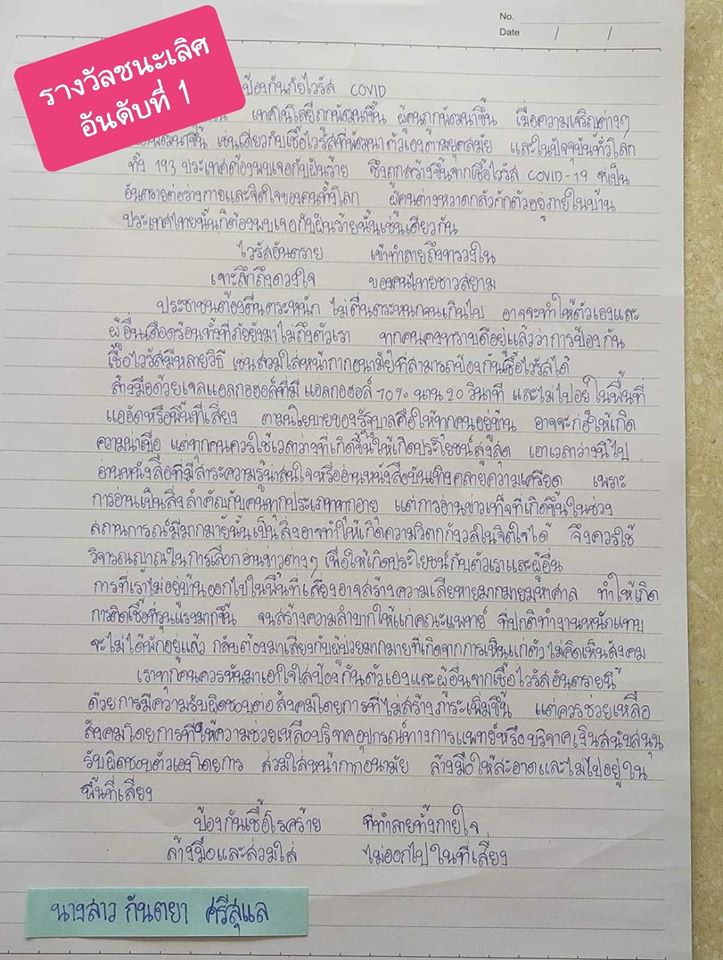 No.
Date / /
รางวัลชนะเลิศ
อันดับที่ 1
ป้องกันภัยไวรัส COVID
เทคโนโลยีถูกพัฒนาขึ้น ผู้คนถูกพัฒนาขึ้น เมื่อความเจริญต่างๆ
พัฒนาขึ้น เช่นเดียวกับเชื้อไวรัสที่พัฒนาตัวเองตามยุคสมัย และในปัจจุบันทั่วโลก
ทั้ง 193 ประเทศต้องพบเจอกับฝันร้าย ซึ่งถูกสร้างขึ้นจากเชื้อไวรัส COVID-19 ที่เป็น
อันตรายต่อร่างกายและจิตใจของคนทั้งโลก ผู้คนต่างหวาดกลัวกักตัวอยู่ภายในบ้าน
ประเทศไทยนั้นก็ต้องพบเจอกับฝันร้ายนั้นเช่นเดียวกัน
ไวรัสอันตราย เข้าทำลายถึงทรวงใน
เจาะลึกถึงดวงใจ ของคนไทยชาวสยาม
ประชาชนต้องตื่นตระหนัก ไม่ตื่นตระหนกจนเกินไป อาจจะทำให้ตัวเองและ
ผู้อื่นเดือดร้อนทั้งที่ภัยยังมาไม่ถึงตัวเรา ทุกคนคงทราบดีอยู่แล้วว่าการป้องกัน
เชื้อไวรัสมีหลายวิธี เช่นสวมใส่หน้ากากอนามัยที่สามารถป้องกันเชื้อไวรัสได้
ล้างมือด้วยเจลแอลกอฮอล์ที่มี แอลกอฮอล์ 70% นาน 20 วินาที และไม่ไปอยู่ในพื้นที่
แออัดหรือพื้นที่เสี่ยง ตามนโยบายของรัฐบาลคือให้ทุกคนอยู่บ้าน อาจจะก่อให้เกิด
ความน่าเบื่อ แต่ทุกคนควรใช้เวลาว่างที่เกิดขึ้นให้เกิดประโยชน์สูงสุด เอาเวลาว่างนี้ไป
อ่านหนังสือที่มีสาระความรู้น่าสนใจหรืออ่านหนังสือบันเทิงคลายความเครียด เพราะ
การอ่านเป็นสิ่งสำคัญกับคนทุกประเภททุกอายุ แต่การอ่านข่าวเท็จที่เกิดขึ้นในช่วง
สถานการณ์มีมากมายนั้นเป็นสิ่งอาจทำให้เกิดความวิตกกังวลในจิตใจได้ จึงควรใช้
วิจารณญาณในการเลือกอ่านข่าวต่างๆ เพื่อให้เกิดประโยชน์กับตัวเราและผู้อื่น
การที่เราไม่อยู่บ้านออกไปในพื้นที่เสี่ยงอาจสร้างความเสียหายมากมายมหาศาล ทำให้เกิด
การติดเชื้อที่รุนแรงมากขึ้น จนสร้างความลำบากให้แก่คณะแพทย์ ที่ปกติทำงานหนักแทบ
จะไม่ได้พักอยู่แล้ว กลับต้องมาเสี่ยงกับผู้ป่วยมากมายที่เกิดจากการเห็นแก่ตัวไม่คิดเห็นสังคม
เราทุกคนควรหันมาเอาใจใส่ป้องกันตัวเองและผู้อื่นจากเชื้อไวรัสอันตรายนี้
ด้วยการมีความรับผิดชอบต่อสังคมโดยการที่ไม่สร้างภาระเพิ่มขึ้น แต่ควรช่วยเหลือ
สังคมโดยการที่ให้ความช่วยเหลือบริจาคอุปกรณ์ทางการแพทย์หรือบริจาคเงินสนับสนุน
รับผิดชอบตัวเองโดยการ สวมใส่หน้ากากอนามัย ล้างมือให้สะอาดและไม่ไปอยู่ใน
พื้นที่เสี่ยง
ป้องกันเชื้อโรคร้าย ที่ทำลายทั้งกายใจ
ล้างมือและสวมใส่ ไม่ออกไปในที่เสี่ยง
นางสาว กันตยา ศรีสุแล